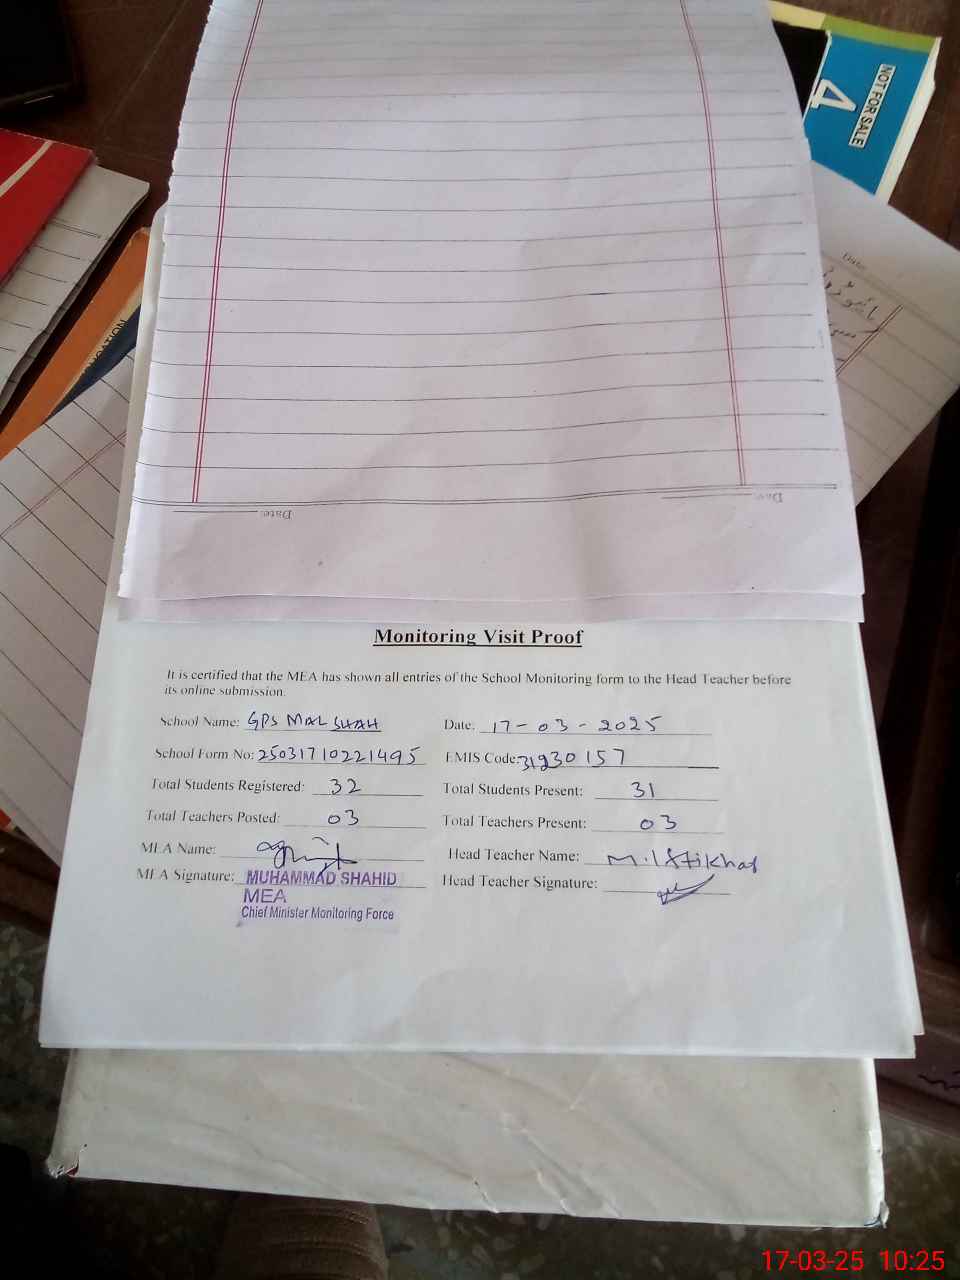 NOT FOR SALE
4
Date:
Date:
Date:
Monitoring Visit Proof
It is certified that the MEA has shown all entries of the School Monitoring form to the Head Teacher before
its online submission.
School Name: GPS MAL SHAH Date: 17-03-2025
School Form No: 25031710221495 EMIS Code: 31930157
Total Students Registered: 32 Total Students Present: 31
Total Teachers Posted: 03 Total Teachers Present: 03
MEA Name: Head Teacher Name: M. Iftikhar
MEA Signature: MUHAMMAD SHAHID Head Teacher Signature:
MEA
Chief Minister Monitoring Force
17-03-25 10:25